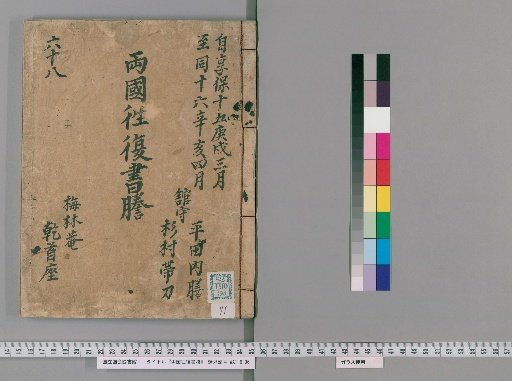 自享保十五庚戌三月
至同十六辛亥四月
館守
平田内膳
杉村帯刀
両國往復書謄
六十八
梅林菴
乾首座